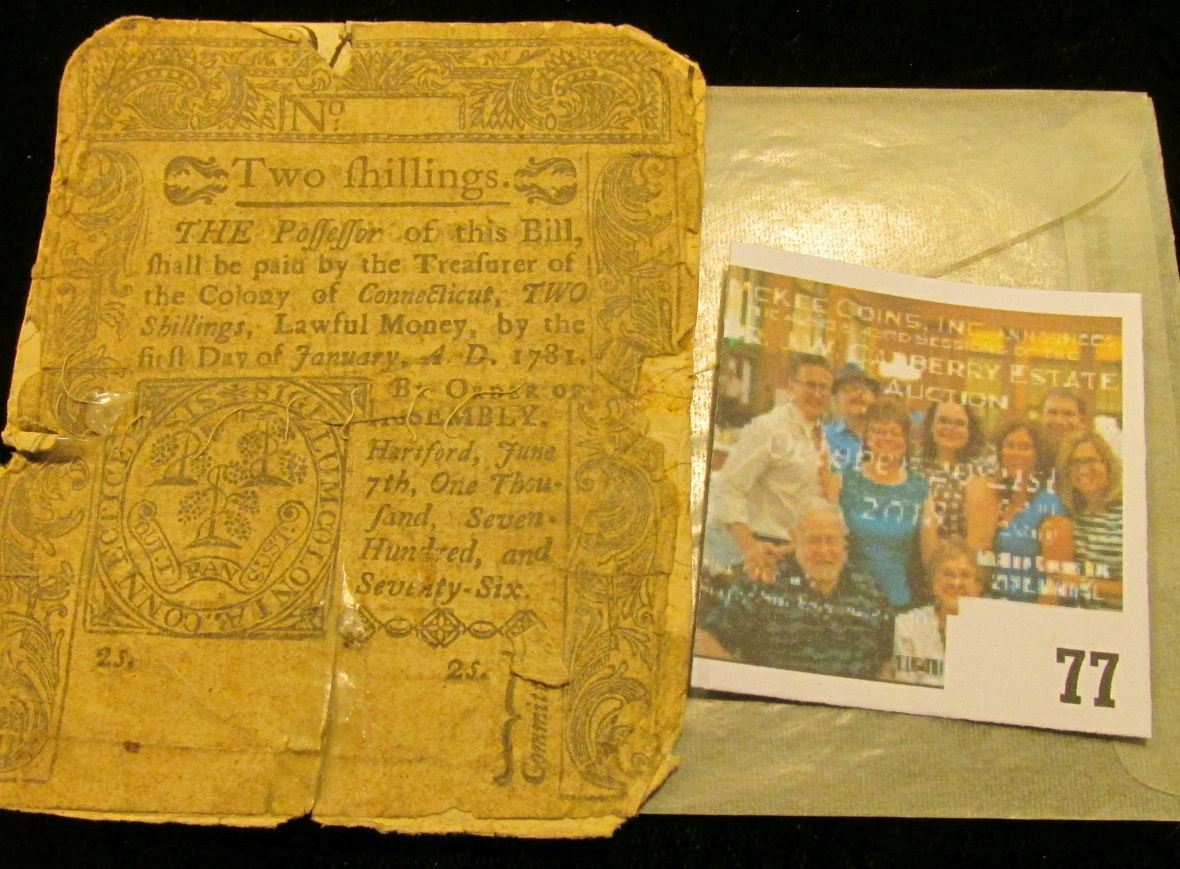 No.
Two ſhillings.
THE Poſſeſſor of this Bill,
ſhall be paid by the Treaſurer of
the Colony of Connecticut, TWO
Shillings, Lawful Money, by the
firſt Day of January, A. D. 1781.
By ORDER OF
ASSEMBLY.
Hartford, June
7th, One Thou-
ſand, Seven-
Hundred, and
Seventy-Six.
SIGILLUM COLONIÆ CONNECTICUTENSIS
QUI TRAN SUST
2s. 2s.
Committ
MCKEE COINS, INC. ANNOUNCES
ESTATE
AUCTION
77